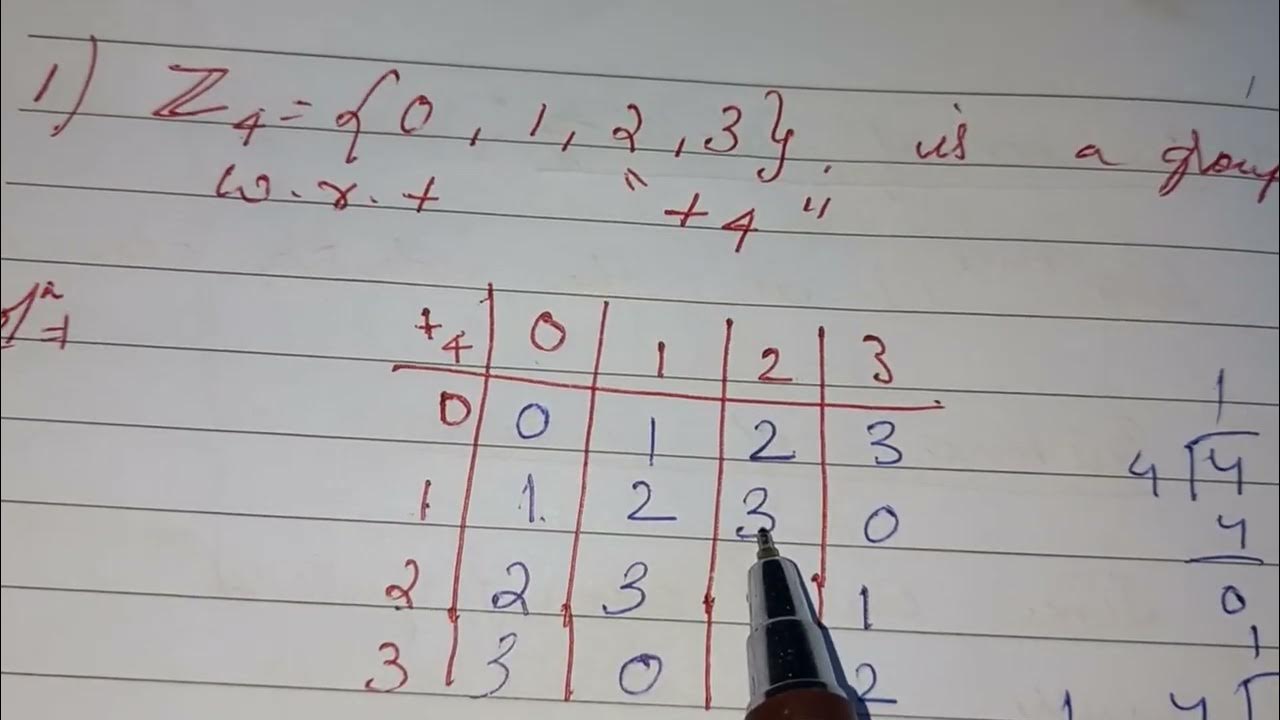 1) ℤ₄ = {0, 1, 2, 3}. is a group
w.r.t "+4"
+₄ 0 1 2 3
0 0 1 2 3
1 1. 2 3 0
2 2 3 1
3 3 0 2
1
4 4
4
0
1
4